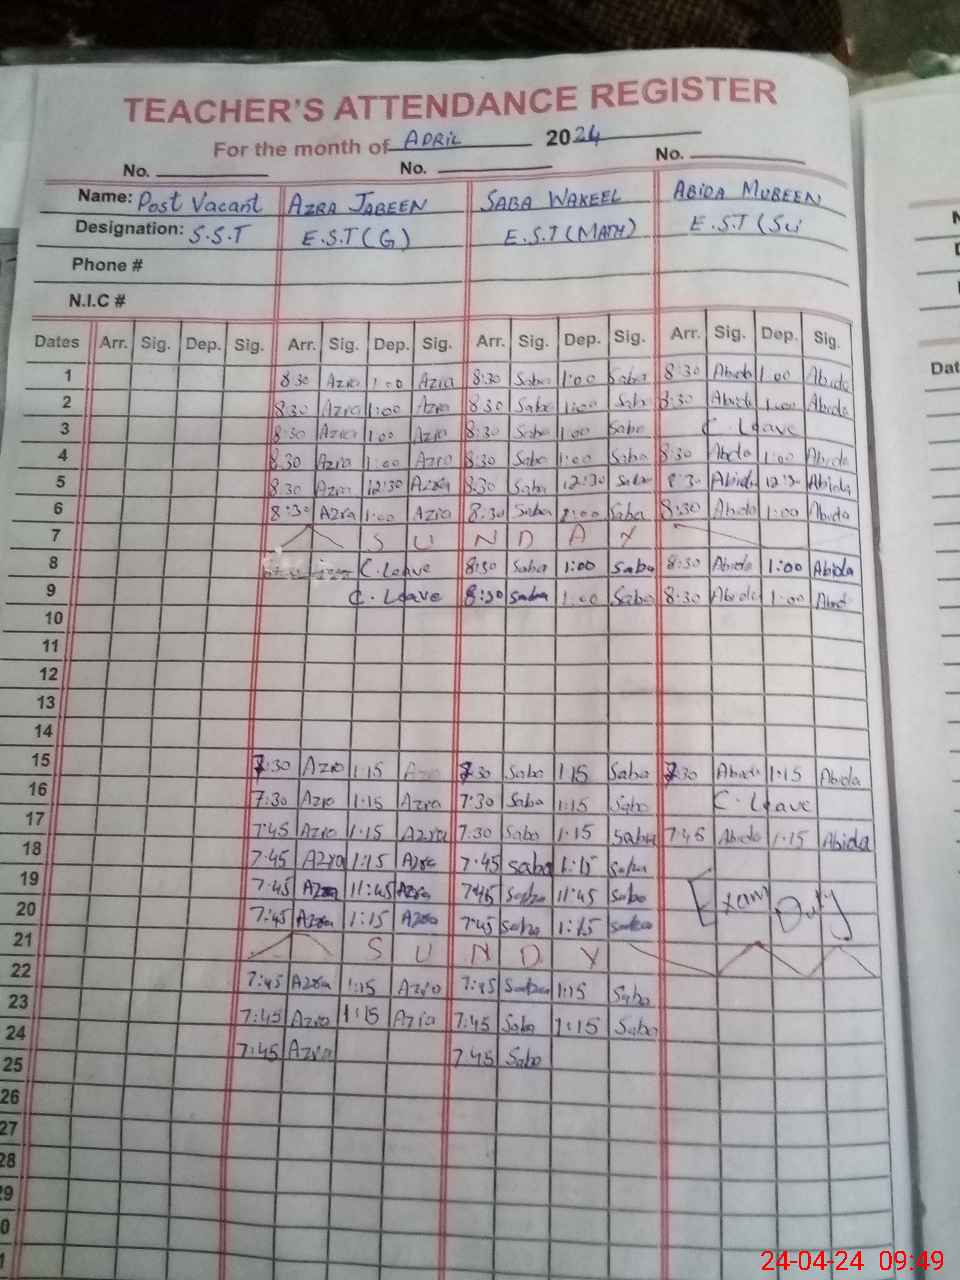 TEACHER'S ATTENDANCE REGISTER
For the month of APRIL 2024
No. No. No.
Name: Post Vacant AZRA JABEEN SABA WAKEEL ABIDA MUBEEN
Designation: S.S.T E.S.T (G) E.S.T (MATH) E.S.T (Sci
Phone #
N.I.C #
Dates Arr. Sig. Dep. Sig. Arr. Sig. Dep. Sig. Arr. Sig. Dep. Sig. Arr. Sig. Dep. Sig.
1 8:30 Azra 1:00 Azra 8:30 Saba 1:00 Saba 8:30 Abida 1:00 Abida
2 8:30 Azra 1:00 Azra 8:30 Saba 1:00 Saba 8:30 Abida 1:00 Abida
3 8:30 Azra 1:00 Azra 8:30 Saba 1:00 Saba C. Leave
4 8:30 Azra 1:00 Azra 8:30 Saba 1:00 Saba 8:30 Abida 1:00 Abida
5 8:30 Azra 12:30 Azra 8:30 Saba 12:30 Saba 8:30 Abida 12:30 Abida
6 8:30 Azra 1:00 Azra 8:30 Saba 1:00 Saba 8:30 Abida 1:00 Abida
7 S U N D A Y
8 C. Leave 8:30 Saba 1:00 Saba 8:30 Abida 1:00 Abida
9 C. Leave 8:30 Saba 1:00 Saba 8:30 Abida 1:00 Abid
10
11
12
13
14
15 7:30 Azra 1:15 Azra 7:30 Saba 1:15 Saba 7:30 Abida 1:15 Abida
16 7:30 Azra 1:15 Azra 7:30 Saba 1:15 Saba C. Leave
17 7:45 Azra 1:15 Azra 7:30 Saba 1:15 Saba 7:45 Abida 1:15 Abida
18 7:45 Azra 1:15 Azra 7:45 Saba 1:15 Saba
19 7:45 Azra 11:45 Azra 7:45 Saba 11:45 Saba Exam Duty
20 7:45 Azra 1:15 Azra 7:45 Saba 1:15 Saba
21 S U N D Y
22 7:45 Azra 1:15 Azra 7:45 Saba 1:15 Saba
23 7:45 Azra 1:15 Azra 7:45 Saba 1:15 Saba
24 7:45 Azra 7:45 Saba
25
26
27
28
29
0
1
N
Dat
24-04-24 09:49